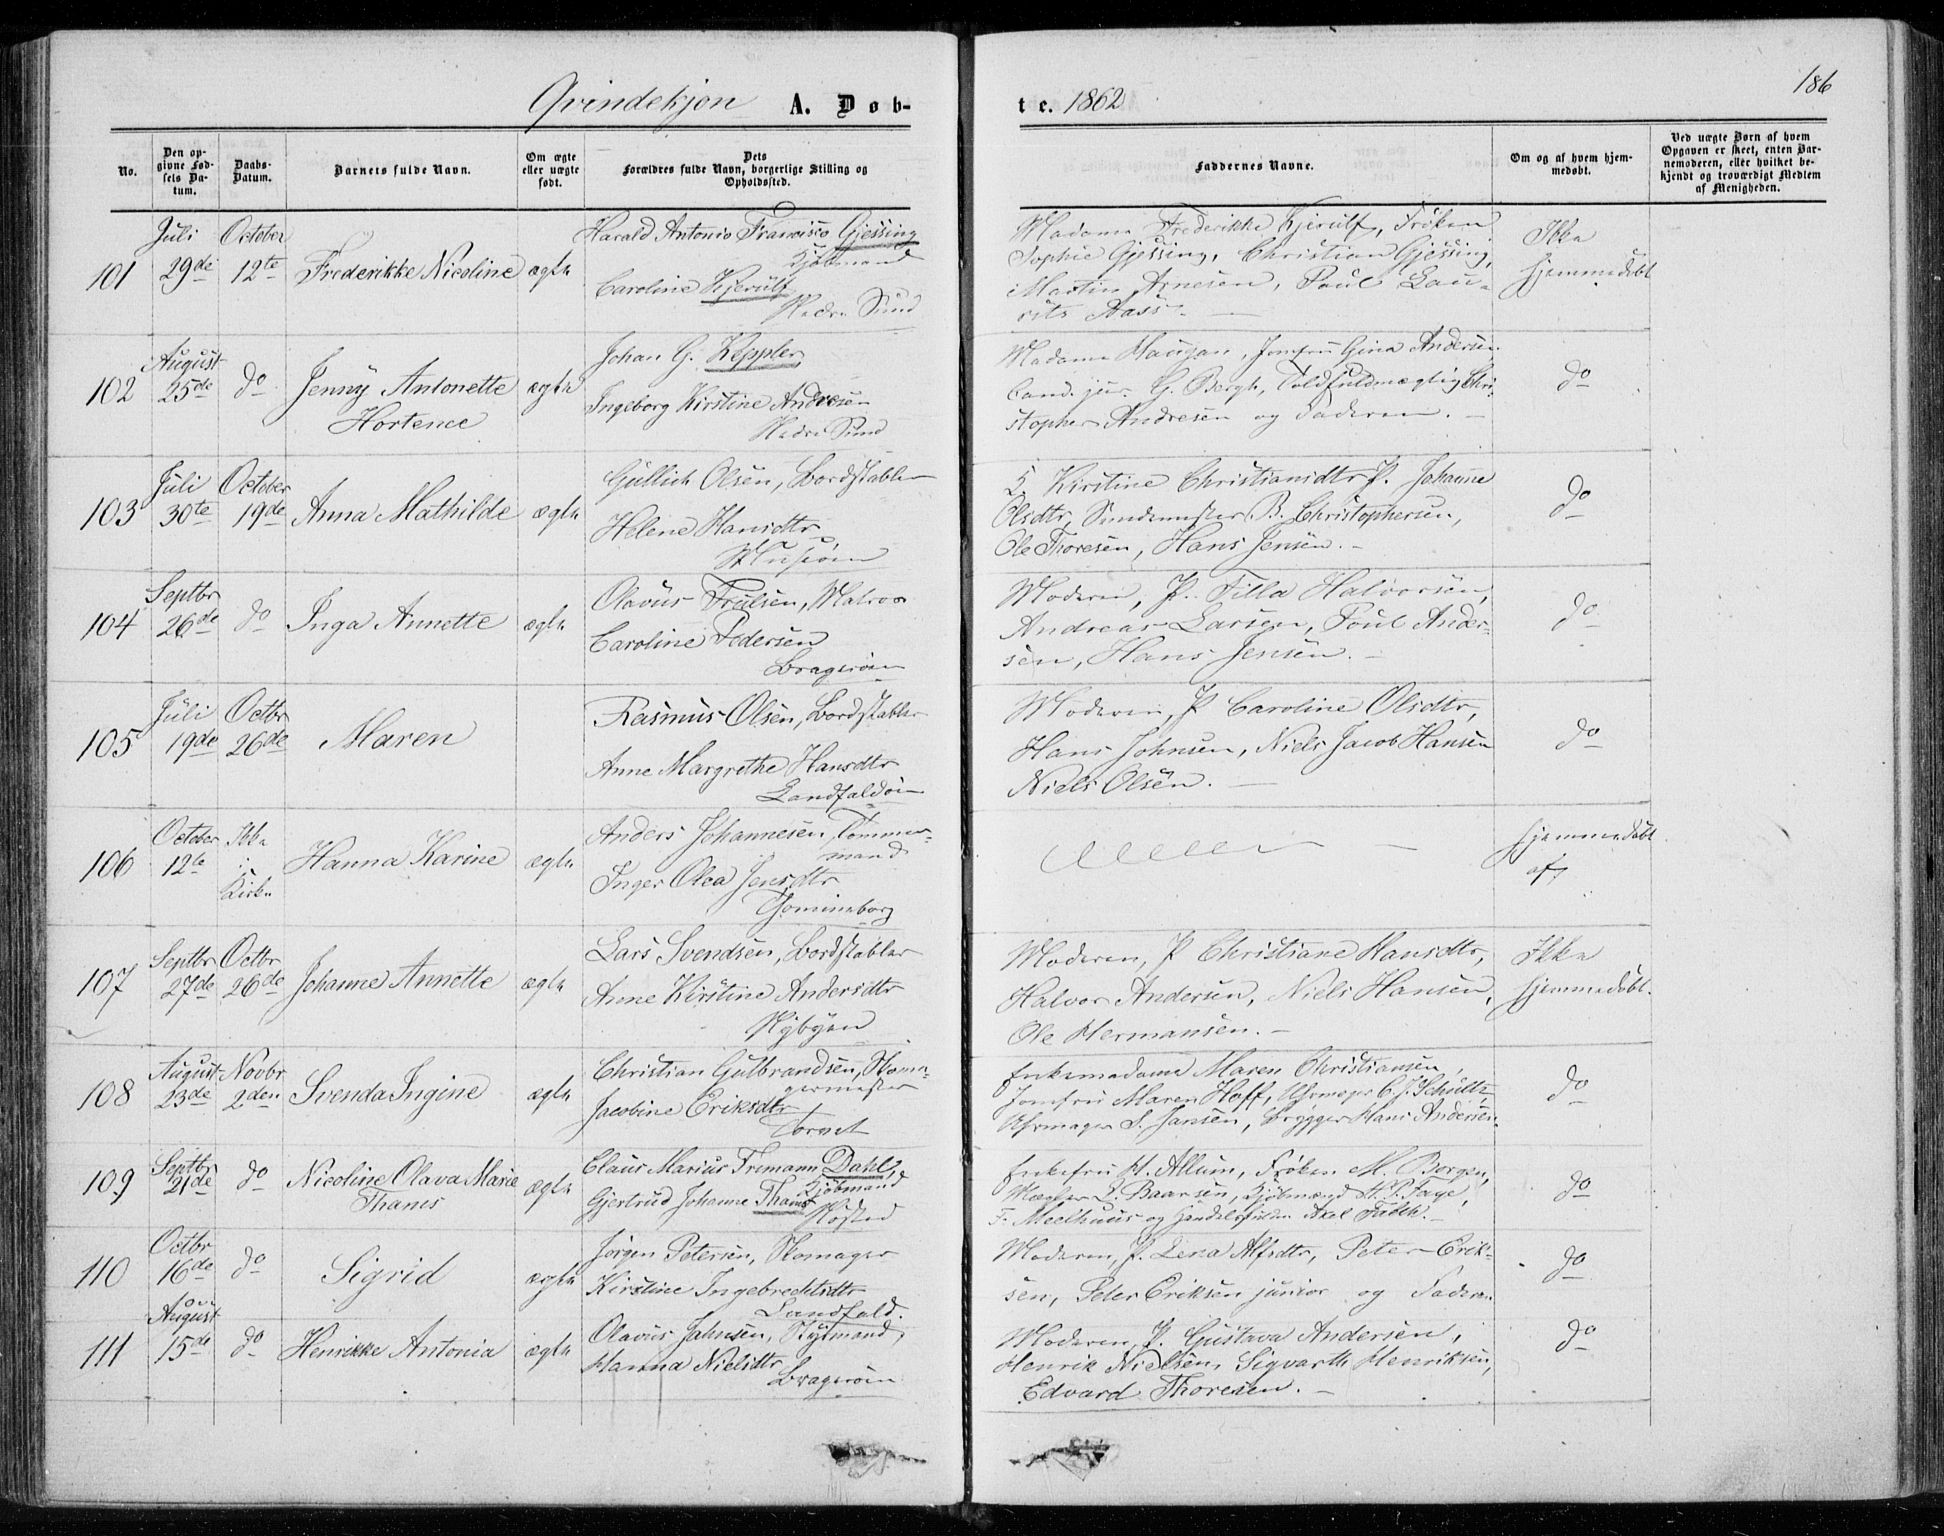 186
Qvindekjøn A. Døb-
te. 1862
No.
Den op-
givne Fød-
sels Da-
tum.
Daabs-
Datum.
Barnets fulde Navn.
Om ægte
eller uægte
født.
Dets
Forældres fulde Navn, borgerlige Stilling og
Opholdssted.
Faddernes Navne.
Om og af hvem hjem-
medøbt.
Ved uægte Børn af hvem
Opgaven er skeet, enten Bar-
nemoderen, eller hvilket be-
kjendt og troværdigt Medlem
af Menigheden.
101
Juli
29de
October
12te
Frederikke Nicoline
ægte
Harald Antonio Francisco Gjessing
Kjøbmand
Caroline Kjerulf
Nedre Sund
Madame Frederikke Kjerulf, Frøken
Sophie Gjessing, Christian Gjessing,
Martin Arnesen, Poul Lau-
rits Aass.
Ikke
hjemmedøbt
102
August
25de
do
Jenny Antonette
Hortence
ægte
Johan G. Keppler
Ingeborg Kirstine Andresen
Nedre Sund
Madame Haugan, Jomfru Gina Andersen
Cand. jur. G. Bergh, Toldfuldmægtig Chri-
stopher Andresen og Faderen.
do
103
Juli
30te
October
19de
Anna Mathilde
ægte
Gullich Olsen, Bordstabler
Helene Hansdtr
Kirstine Christiansdtr P. Johanne
Olsdtr, Sundmester B. Christophersen,
Ole Thoresen, Hans Jensen.
do
104
Septbr
26de
do
Inga Annette
ægte
Olavus Trulsen, Matros
Caroline Pedersen
Bragerøen
Moderen, P. Tilla Halvorsen,
Andreas Larsen, Poul Ander-
sen, Hans Jensen.
do
105
Juli
19de
Octbr
26de
Maren
Rasmus Olsen, Bordstabler
Anne Margrethe Hansdtr
Landfaldøen
Moderen, P Caroline Olsdtr,
Hans Johnsen, Niels Jacob Hansen
Niels Olsen.
do
106
October
12te
Ikke
i
Kirken
Hanna Karine
ægte
Anders Johannesen, Tømmer-
mand
Inger Olea Jensdtr
Tomineborg
hjemmedøbt
af
107
Septbr
27de
Octbr
26de
Johanne Annette
ægte
Lars Svendsen, Bordstabler
Anne Kirstine Andersdtr
Nybyen
Moderen, P Christiane Hansdtr,
Halvor Andersen, Niels Hansen,
Ole Hermansen.
Ikke
hjemmedøbt.
108
August
23de
Novbr
2den
Svenda Ingine
ægte
Christian Gulbrandsen, Skoma-
germester
Jacobine Eriksdtr
Torvet
Enkemadame Maren Christiansen,
Jomfru Maren Hoff, Uhrmager C. J. Schultz
Uhrmager S. Jansen, Brygger Hans Andersen.
do
109
Septbr
21de
do
Nicoline Olava Marie
Thanes
ægte
Claus Marius Frimann Dahl,
Kjøbmand
Gjertrud Johanne Thames
Nøsted
Enkefru H. Allum, Frøken M. Borgen,
Baarsen, Kjøbmænd H. P. Faye,
F. Meelhuus og Axel Falch.
do
110
Octbr
16de
do
Sigrid
ægte
Jørgen Petersen, Skomager
Kirstine Ingebrechtsdtr
Landfald.
Moderen, P. Lena Alfsdtr, Peter Erik-
sen, Peter Eriksen junior og Faderen
do
111
August
15de
do
Henrikke Antonia
ægte
Olavus Jahnsen, Styrmand,
Hanna Nielsdtr
Bragerøen
Moderen, P. Gustava Andersen,
Henrik Nielsen, Sigvarth Henriksen,
Edvard Thoresen.
do